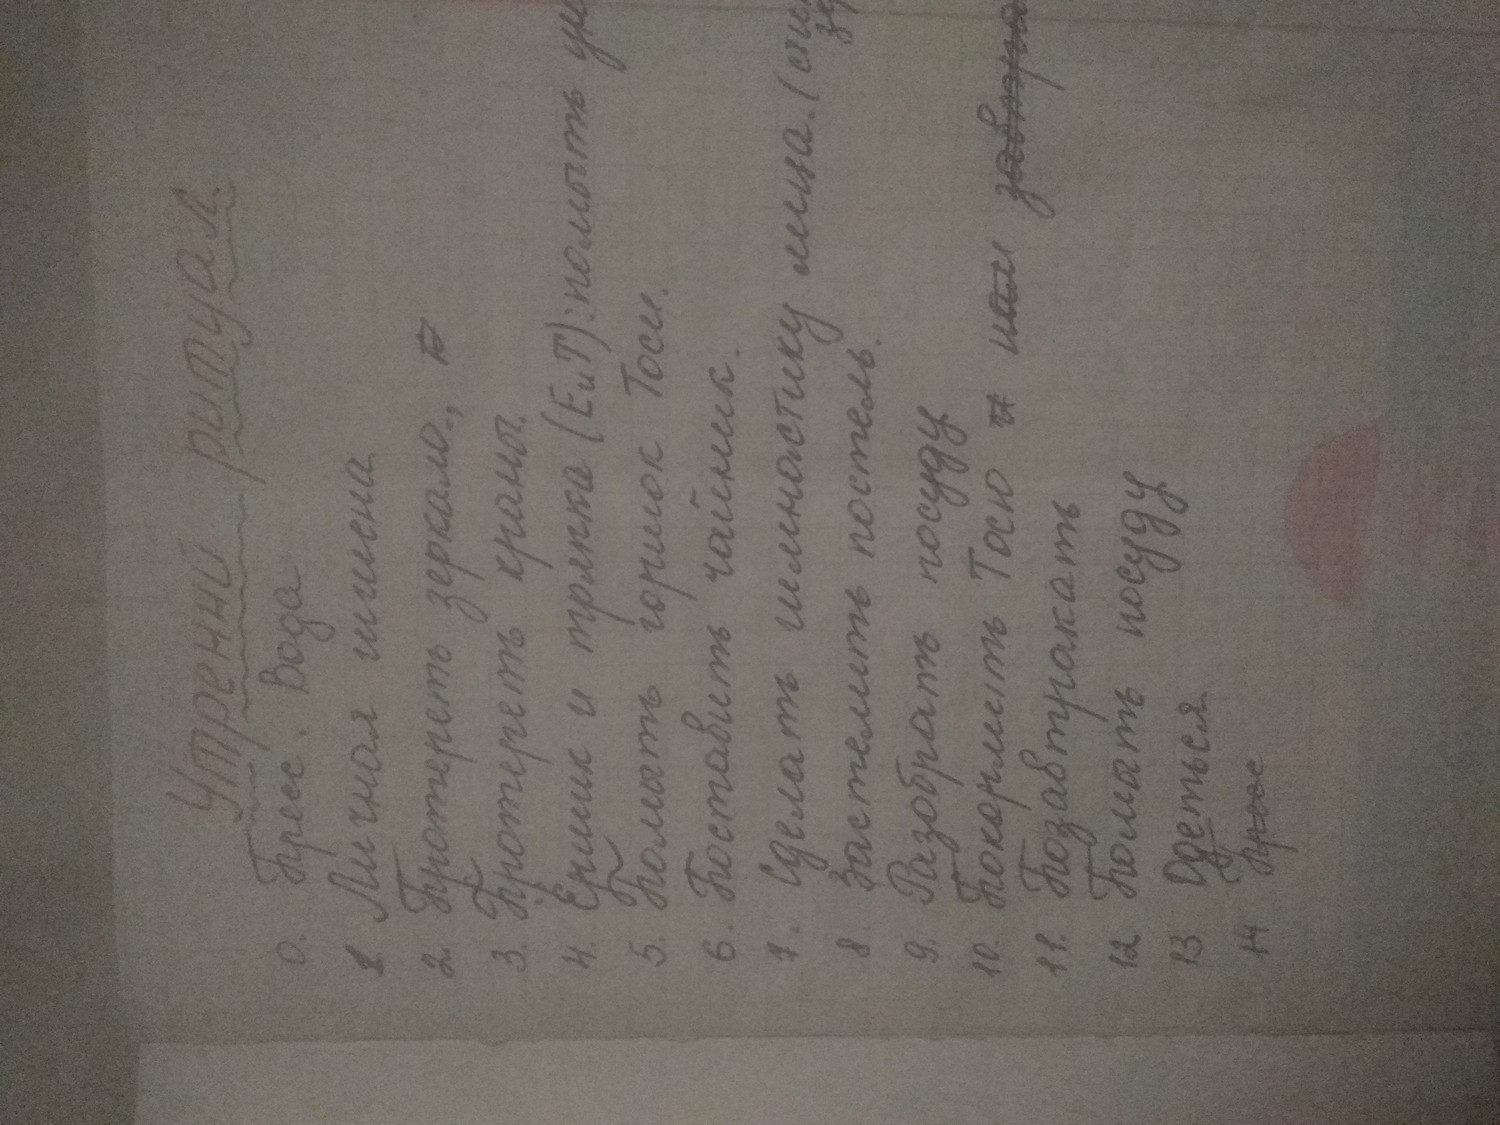 Утрений ритуал.
0. Пресс. Вода
1 Личная гигиена
2 Протереть зеркало.,
3. Протереть краны.
4. Ёршик и тряпка (Е и Т): помыть
5. Помыть горшок Тоси.
6. Поставить чайник.
7. Сделать гимностику лица.
8. Застелить постель.
9. Разобрать посуду
10. Покормить Тосю и или завтра
11. Позавтракать
12 Помыть посуду
13 Одеться
14 Пресс